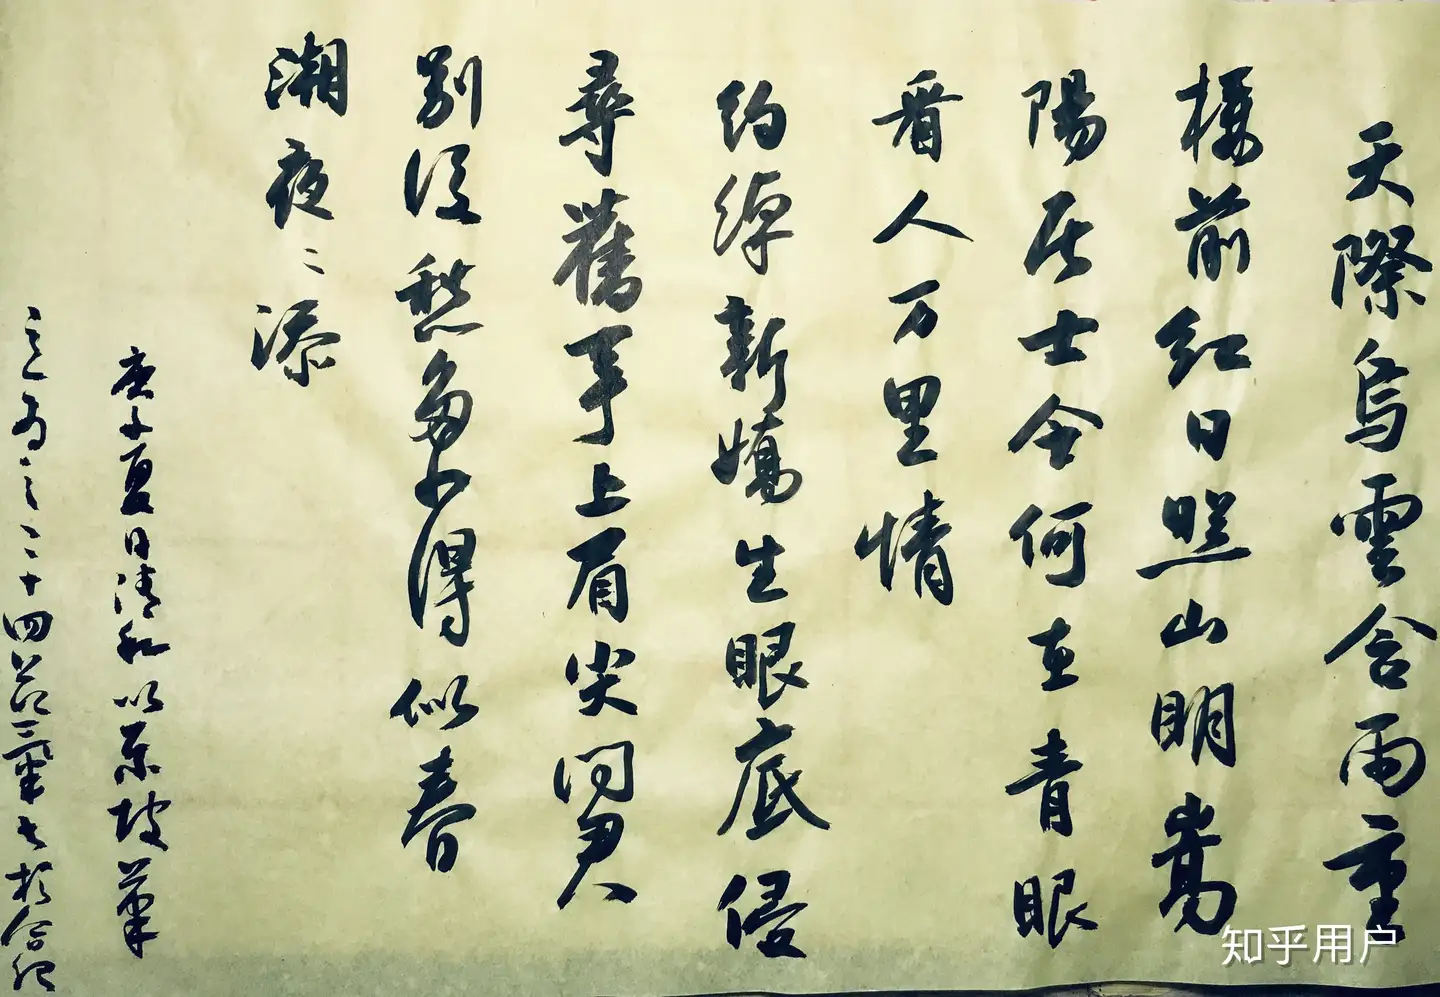 天際烏雲含雨重
樓前紅日照山明嵩
陽居士今何在青眼
看人万里情
約綽新嬌生眼底侵
尋舊事上眉尖問君
別後愁多少得似春
潮夜〻添
庚子夏日清和以東坡筆
意为之二十四节氣於合肥
知乎用户